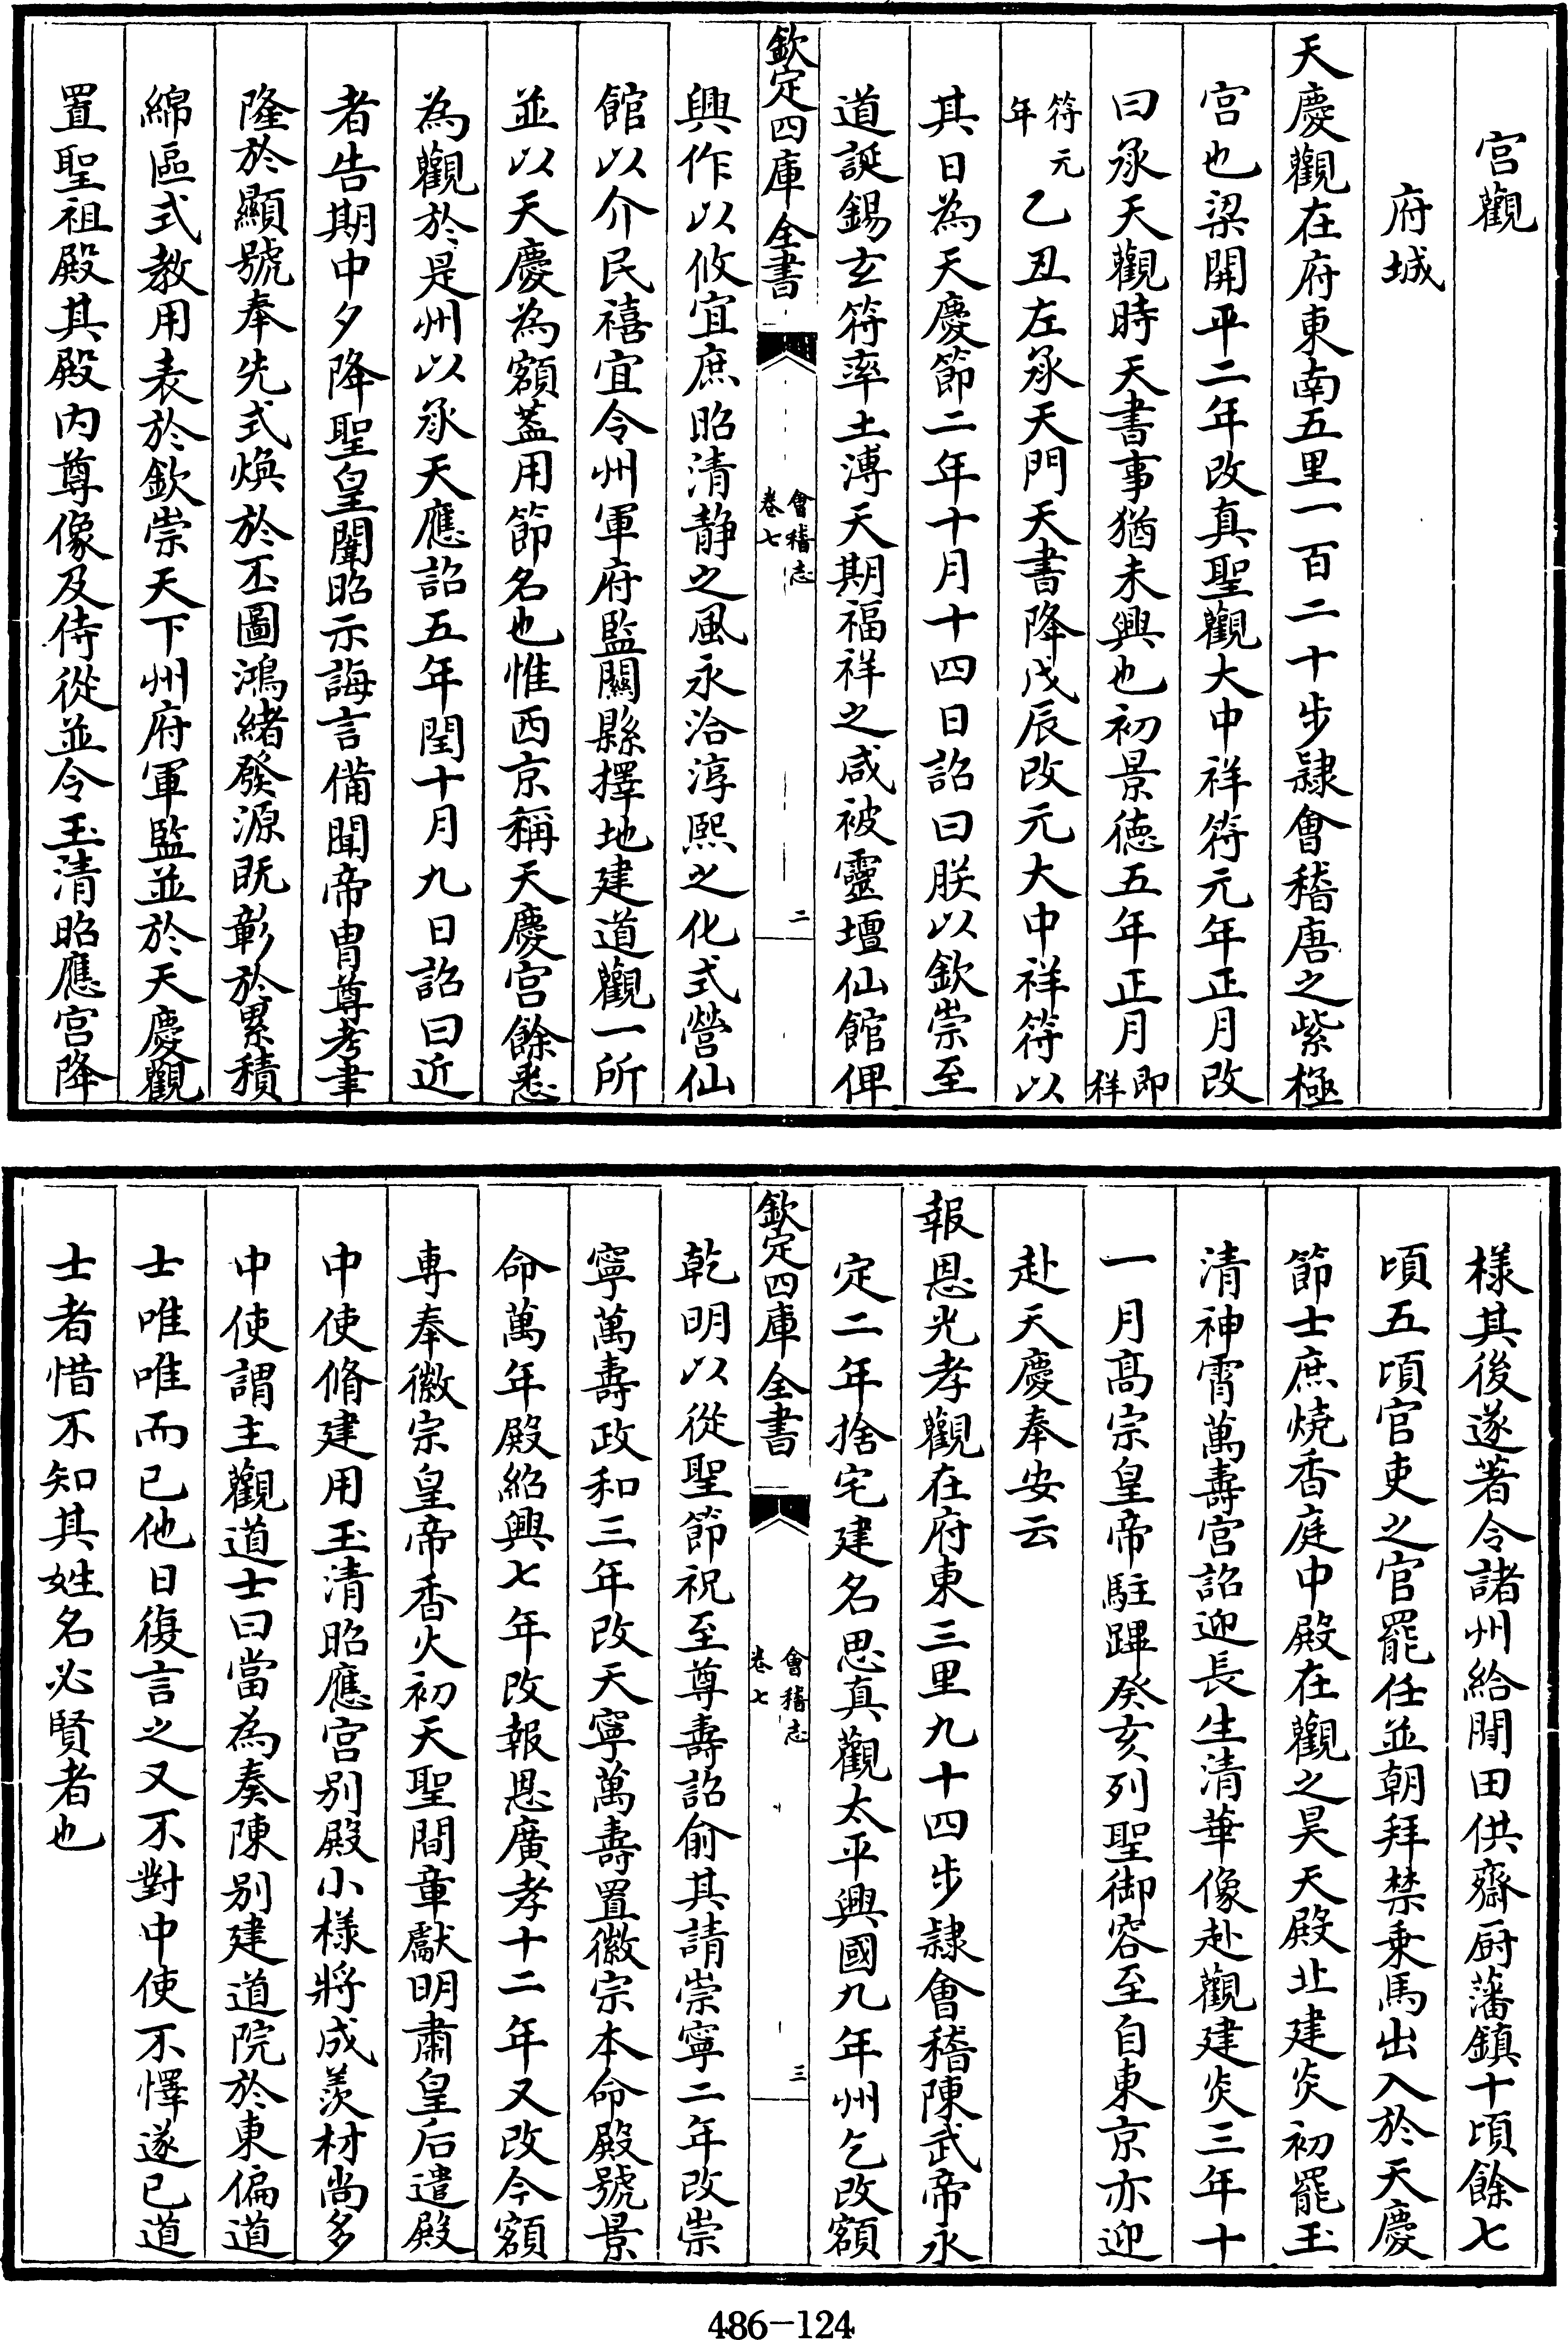 宫觀
府城
天慶觀在府東南五里一百二十步隷會稽唐之紫極
宫也梁開平二年改真聖觀大中祥符元年正月改
曰承天觀時天書事猶未興也初景徳五年正月即祥
符元年乙丑左承天門天書降戊辰改元大中祥符以
其日為天慶節二年十月十四日詔曰朕以欽崇至
道誕錫玄符率土溥天期福祥之咸被靈壇仙館俾
欽定四庫全書
會稽志
卷七
二
興作以攸宜庶昭清静之風永洽淳熙之化式營仙
館以介民禧宜令州軍府監關縣擇地建道觀一所
並以天慶為額葢用節名也惟西京稱天慶宫餘悉
為觀於是州以承天應詔五年閏十月九日詔曰近
者告期中夕降聖皇闈昭示誨言備聞帝胄尊考聿
隆於顯號奉先式煥於丕圖鴻緒發源既彰於累積
綿區式教用表於欽崇天下州府軍監並於天慶觀
置聖祖殿其殿内尊像及侍從並令玉清昭應宫降
樣其後遂著令諸州給閒田供齋厨藩鎮十頃餘七
頃五頃官吏之官罷任並朝拜禁乗馬出入於天慶
節士庶燒香庭中殿在觀之昊天殿北建炎初罷玉
清神霄萬壽宫詔迎長生清華像赴觀建炎三年十
一月髙宗皇帝駐蹕癸亥列聖御容至自東京亦迎
赴天慶奉安云
報恩光孝觀在府東三里九十四步隷會稽陳武帝永
定二年捨宅建名思真觀太平興國九年州乞改額
欽定四庫全書
會稽志
卷七
三
乾明以從聖節祝至尊壽詔俞其請崇寧二年改崇
寧萬壽政和三年改天寧萬壽置徽宗本命殿號景
命萬年殿紹興七年改報恩廣孝十二年又改今額
専奉徽宗皇帝香火初天聖間章獻明肅皇后遣殿
中使脩建用玉清昭應宫别殿小様將成羡材尚多
中使謂主觀道士曰當為奏陳别建道院於東偏道
士唯唯而已他日復言之又不對中使不懌遂已道
士者惜不知其姓名必賢者也
486-124